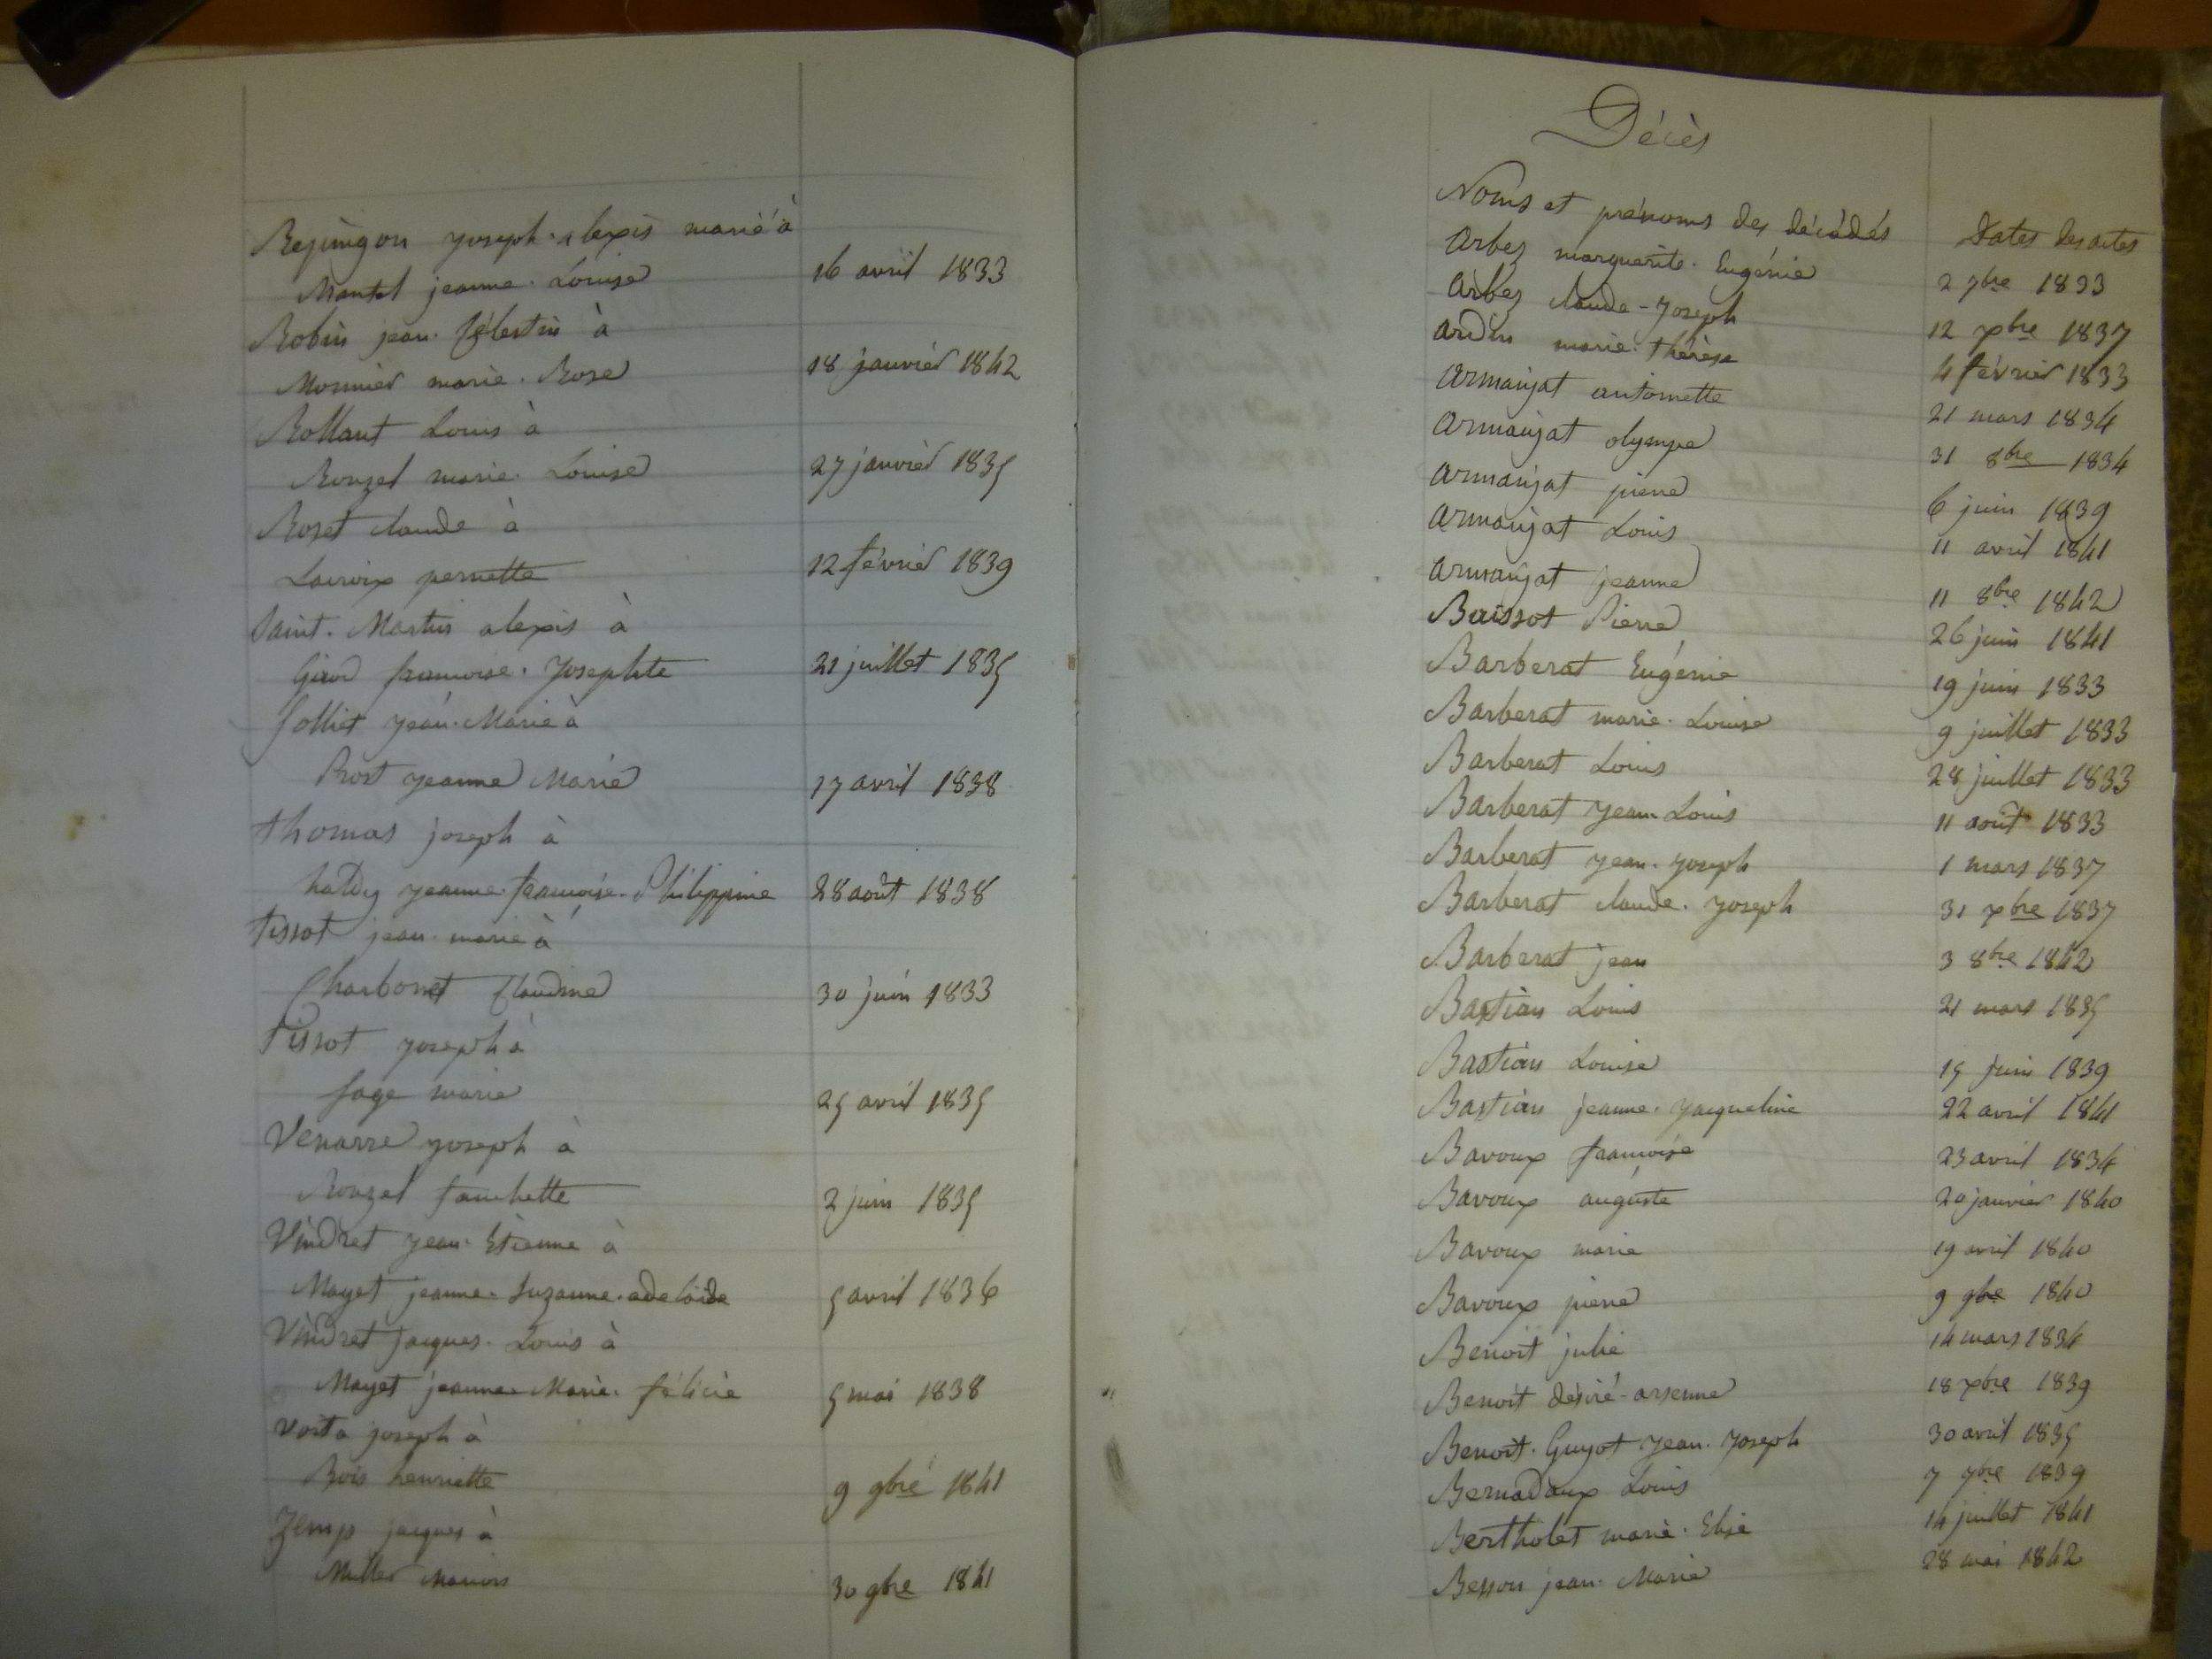 Rejingon joseph-alexis marié à
Mantel jeanne. Louise 16 avril 1833
Robin jean. félestin à
Monnier marie. Rose 18 janvier 1842
Rollant Louis à
Rouzet marie. Louise 27 janvier 1835
Rozet claude à
Lacroix pernette 12 février 1839
Saint. Martin alexis à
Girod francoise. Josephte 21 juillet 1835
Jolliet jean. Marie à
Prost jeanne Marie 17 avril 1838
thomas joseph à
jeanne-francoise. Philippine 28 août 1838
tissot jean-marie à
Charbonet Claudine 30 juin 1833
tissot joseph à
sage marie 25 avril 1835
Venarre joseph à
Rouzet fanchette 2 juin 1835
Vindret jean. Etienne à
Mayet jeanne. Suzanne. adelaide 5 avril 1836
Vindret jacques. Louis à
Mayet jeanne. Marie. félicie 5 mai 1838
Vosta joseph à
Bois henriette 9 9bre 1841
Zemp jacques à
Muller 30 9bre 1841
Décès
Noms et prénoms des décédés Dates des actes
Arbez marguerite. Eugénie 2 7bre 1833
Arbez claude-joseph 12 xbre 1837
Ardin marie. thérèse 4 février 1833
Armanjat antoinette 21 mars 1834
Armanjat olympe 31 8bre 1834
Armanjat pierre 6 juin 1839
Armanjat Louis 11 avril 1841
Armanjat jeanne 11 8bre 1842
Buissot Pierre 26 juin 1841
Barberat Eugénie 19 juin 1833
Barberat marie. Louise 9 juillet 1833
Barberat Louis 28 juillet 1833
Barberat jean. Louis 11 août 1833
Barberat jean. joseph 1 mars 1837
Barberat claude. joseph 31 xbre 1837
Barberat jean 3 8bre 1842
Bastian Louis 21 mars 1835
Bastian Louise 15 juin 1839
Bastian jeanne. jacqueline 22 avril 1841
Bavoux francoise 23 avril 1834
Bavoux auguste 20 janvier 1840
Bavoux marie 19 avril 1840
Bavoux pierre 9 9bre 1840
Benoit julie 14 mars 1834
Benoit désiré-arsenne 18 xbre 1839
Benoit. Guyot jean. joseph 30 avril 1835
Bernadaux Louis 7 7bre 1839
Bertholet marie. Elise 14 juillet 1841
Besson jean. Marie 28 mai 1842